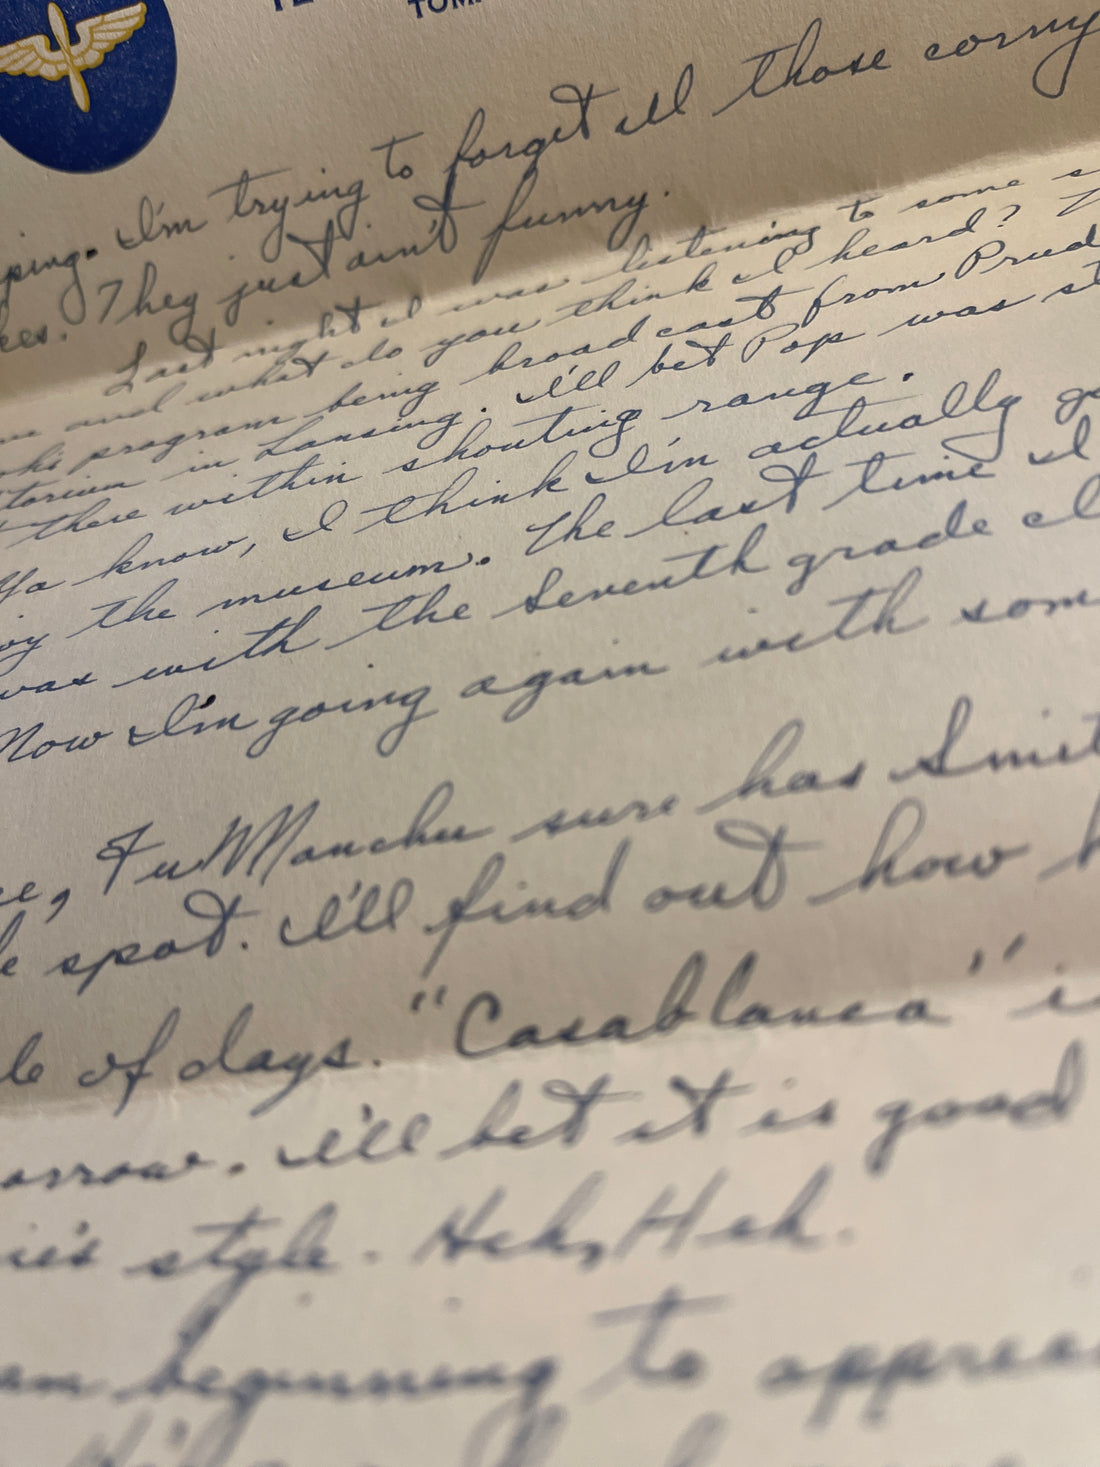 TOM
ping. I'm trying to forget all those corny
kes. They just ain't funny.
Last night I was listening to some
and what do you think I heard?
program being broadcast from Prud
torium in Lansing. I'll bet Pop was st
there within shouting range.
Ya know, I think I'm actually go
oy the museum. The last time I
was with the seventh grade cl
Now I'm going again with som
ee, Fu Manchu sure has Smit
le spot. I'll find out how h
le of days. "Casablanca" is
orrow. I'll bet it is good
ie's style. Heh, Heh.
am beginning to apprec